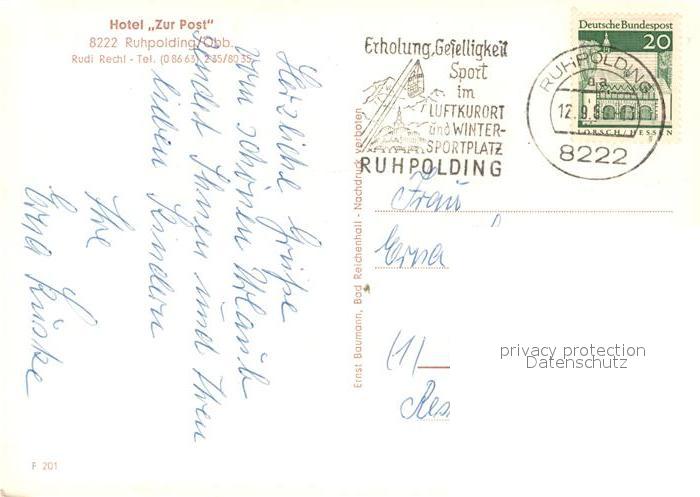 Hotel „Zur Post"
8222 Ruhpolding/Obb.
Rudi Rechl - Tel. (0 86 63) 2 35/80 35
Herzliche Grüße
vom schönen Urlaub
sendet Ihnen und Ihren
lieben Kindern
Ihre
Erna
F 201
Ernst Baumann, Bad Reichenhall - Nachdruck verboten
Erholung, Geselligkeit
Sport
im
LUFTKURORT
und WINTER-
SPORTPLATZ
RUHPOLDING
RUHPOLDING
12.9.
8222
Deutsche Bundespost
20
LORSCH/HESSEN
Frau
Erna
(1)
Res
privacy protection
Datenschutz